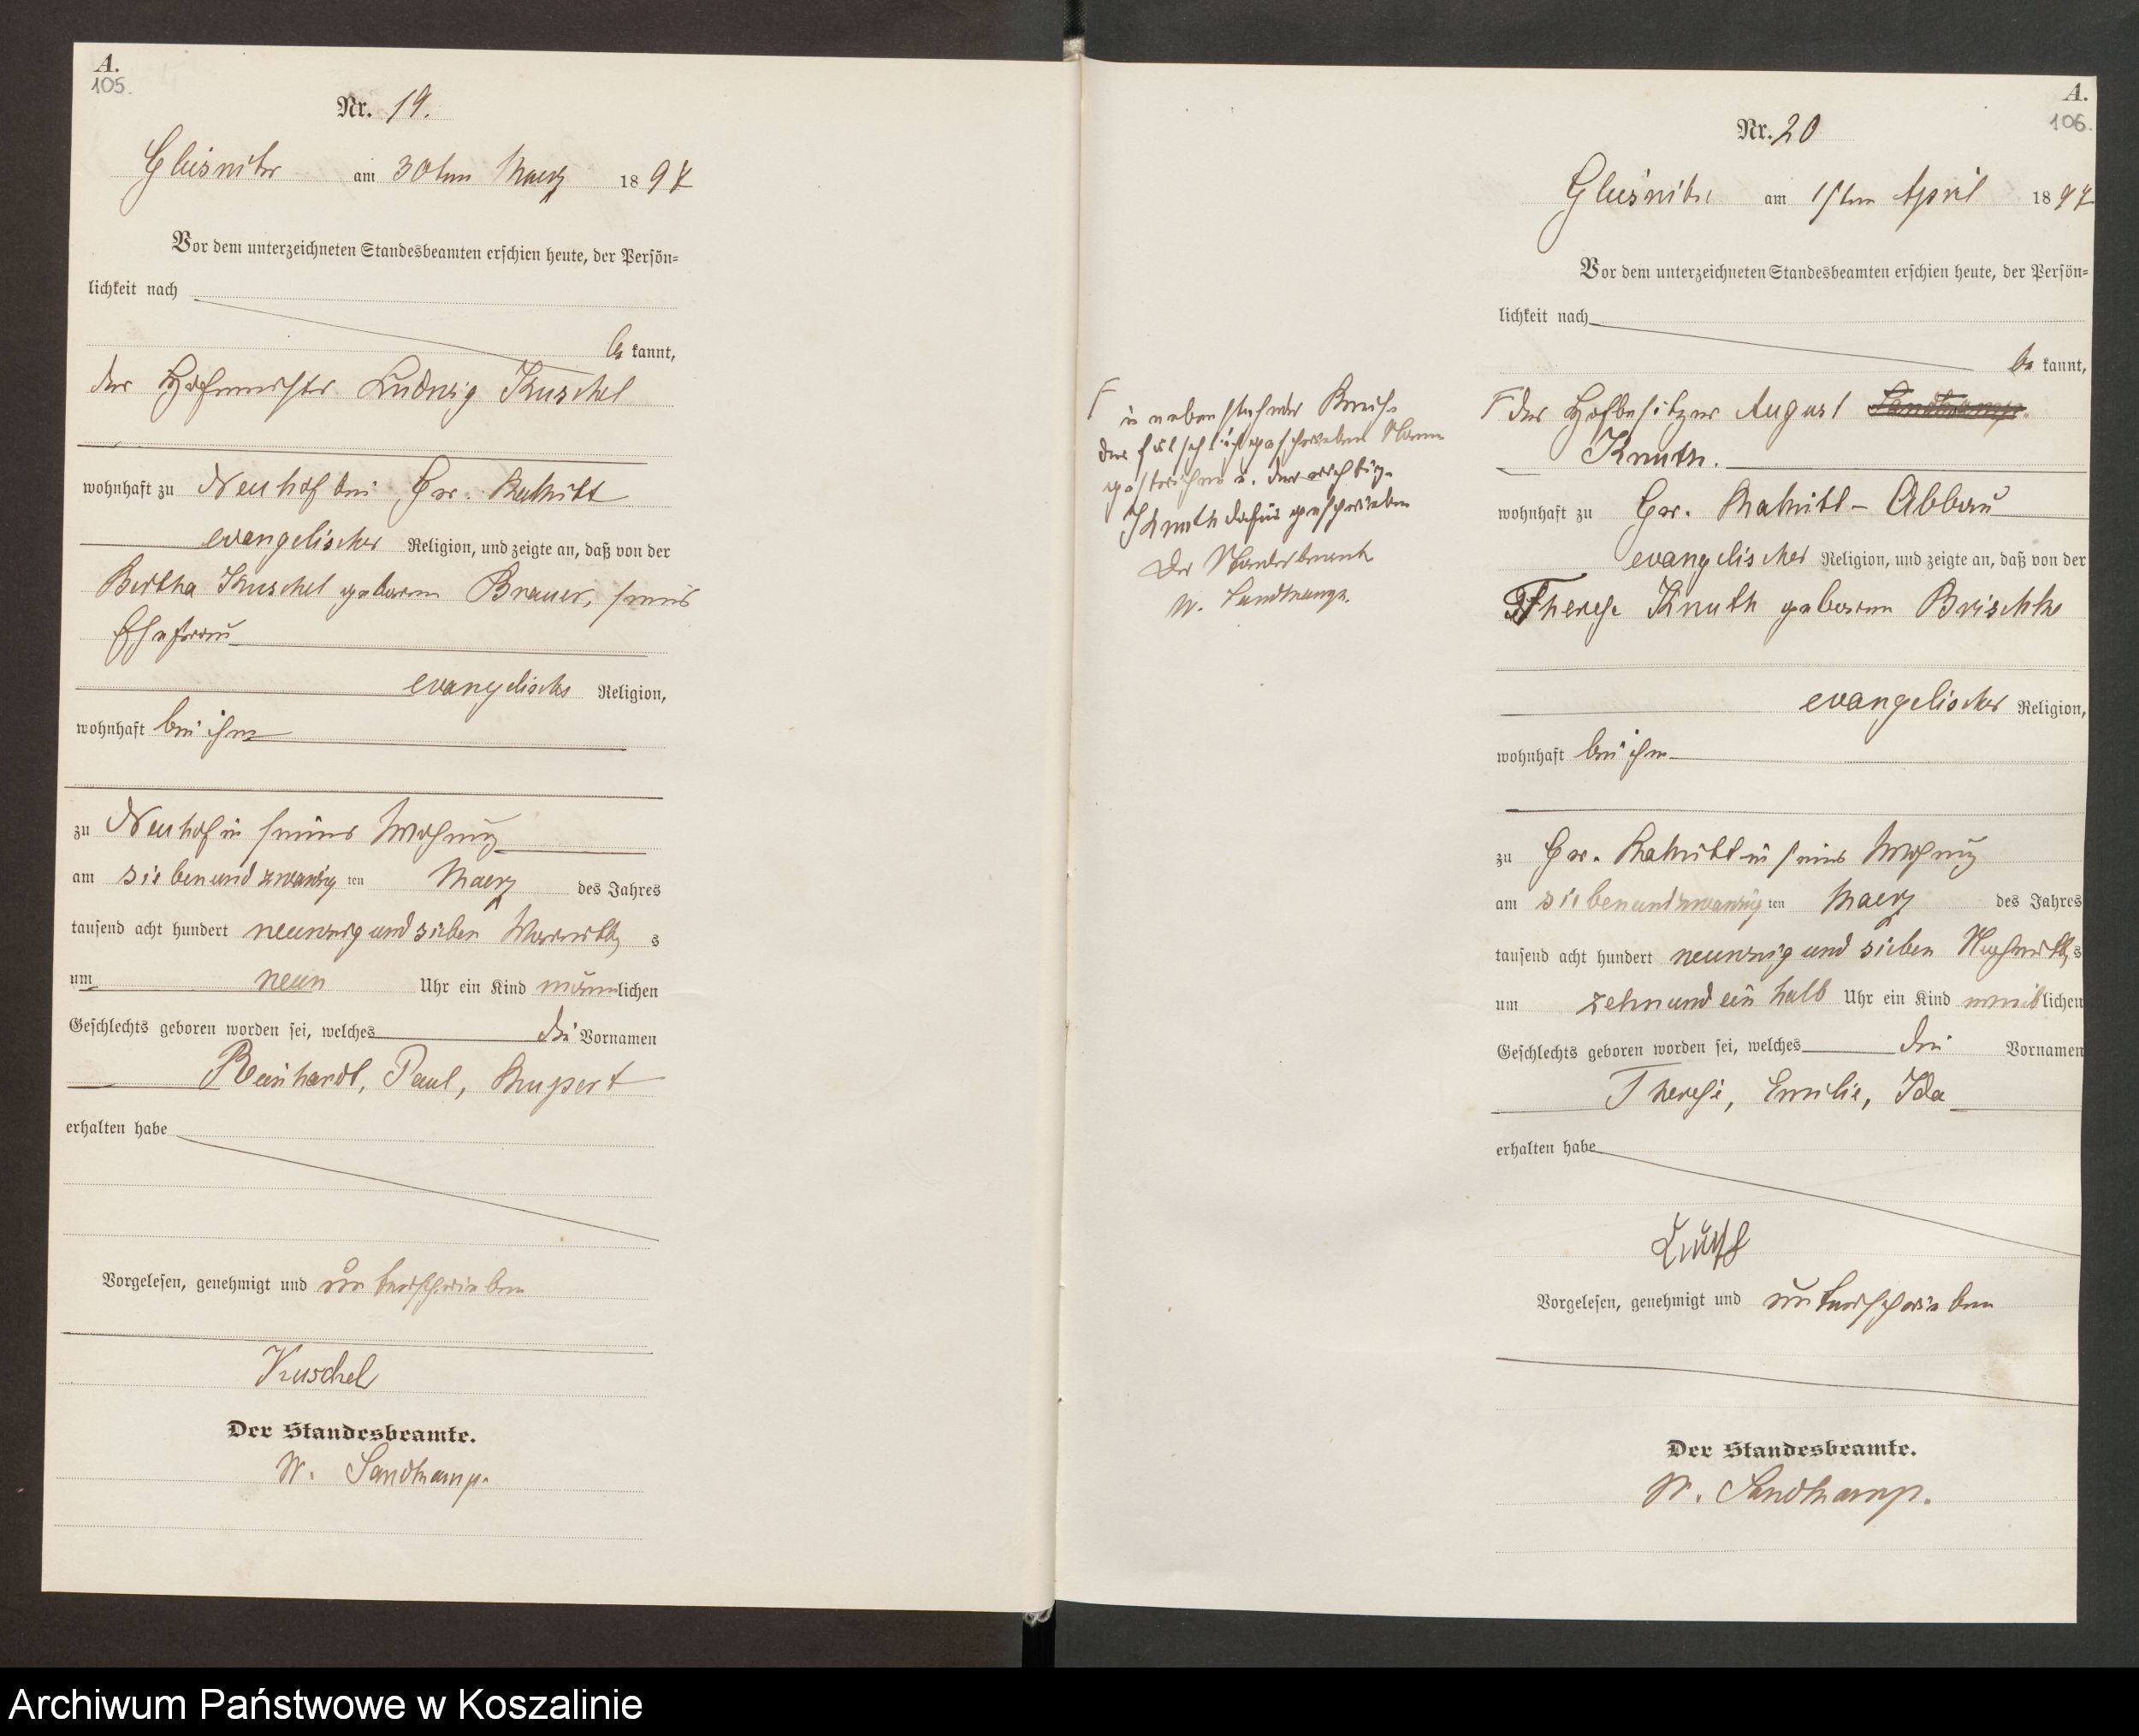 A.
105.
Nr. 19.
Glüsnitz am 30ten Maerz 1897
Vor dem unterzeichneten Standesbeamten erschien heute, der Persön-
lichkeit nach
be kannt,
der Hofmeister Ludwig Kuschel
wohnhaft zu Neuhof bei Gr. Rakitt
evangelischer Religion, und zeigte an, daß von der
Bertha Kuschel geborne Brauer, seiner
Ehefrau
evangelischer Religion,
wohnhaft bei ihm
zu Neuhof in seiner Wohnung
am siebenundzwanzig ten Maerz des Jahres
tausend acht hundert neunzig und sieben Vormittag s
um neun Uhr ein Kind männlichen
Geschlechts geboren worden sei, welches die Vornamen
Reinhardt, Paul, Rupert
erhalten habe
Vorgelesen, genehmigt und unterschrieben
Kuschel
Der Standesbeamte.
W. Sandkamp.
A.
106.
Nr. 20
Glüsnitz am 1sten April 1897
Vor dem unterzeichneten Standesbeamten erschien heute, der Persön-
lichkeit nach
be kannt,
der Hofbesitzer August Sandkamp
Knuth.
wohnhaft zu Gr. Rakitt - Abbau
evangelischer Religion, und zeigte an, daß von der
Therese Knuth geborne Brischke
evangelischer Religion,
wohnhaft bei ihm
zu Gr. Rakitt in seiner Wohnung
am siebenundzwanzig ten Maerz des Jahres
tausend acht hundert neunzig und sieben Nachmittag s
um zehn und ein halb Uhr ein Kind weiblichen
Geschlechts geboren worden sei, welches die Vornamen
Therese, Emilie, Ida
erhalten habe
Vorgelesen, genehmigt und unterschrieben
Der Standesbeamte.
W. Sandkamp.
in nebenstehender
der fälschlich geschriebene Name
gestrichen u. der richtige
Knuth dafür geschrieben
Der Standesbeamte
W. Sandkamp.
Archiwum Państwowe w Koszalinie